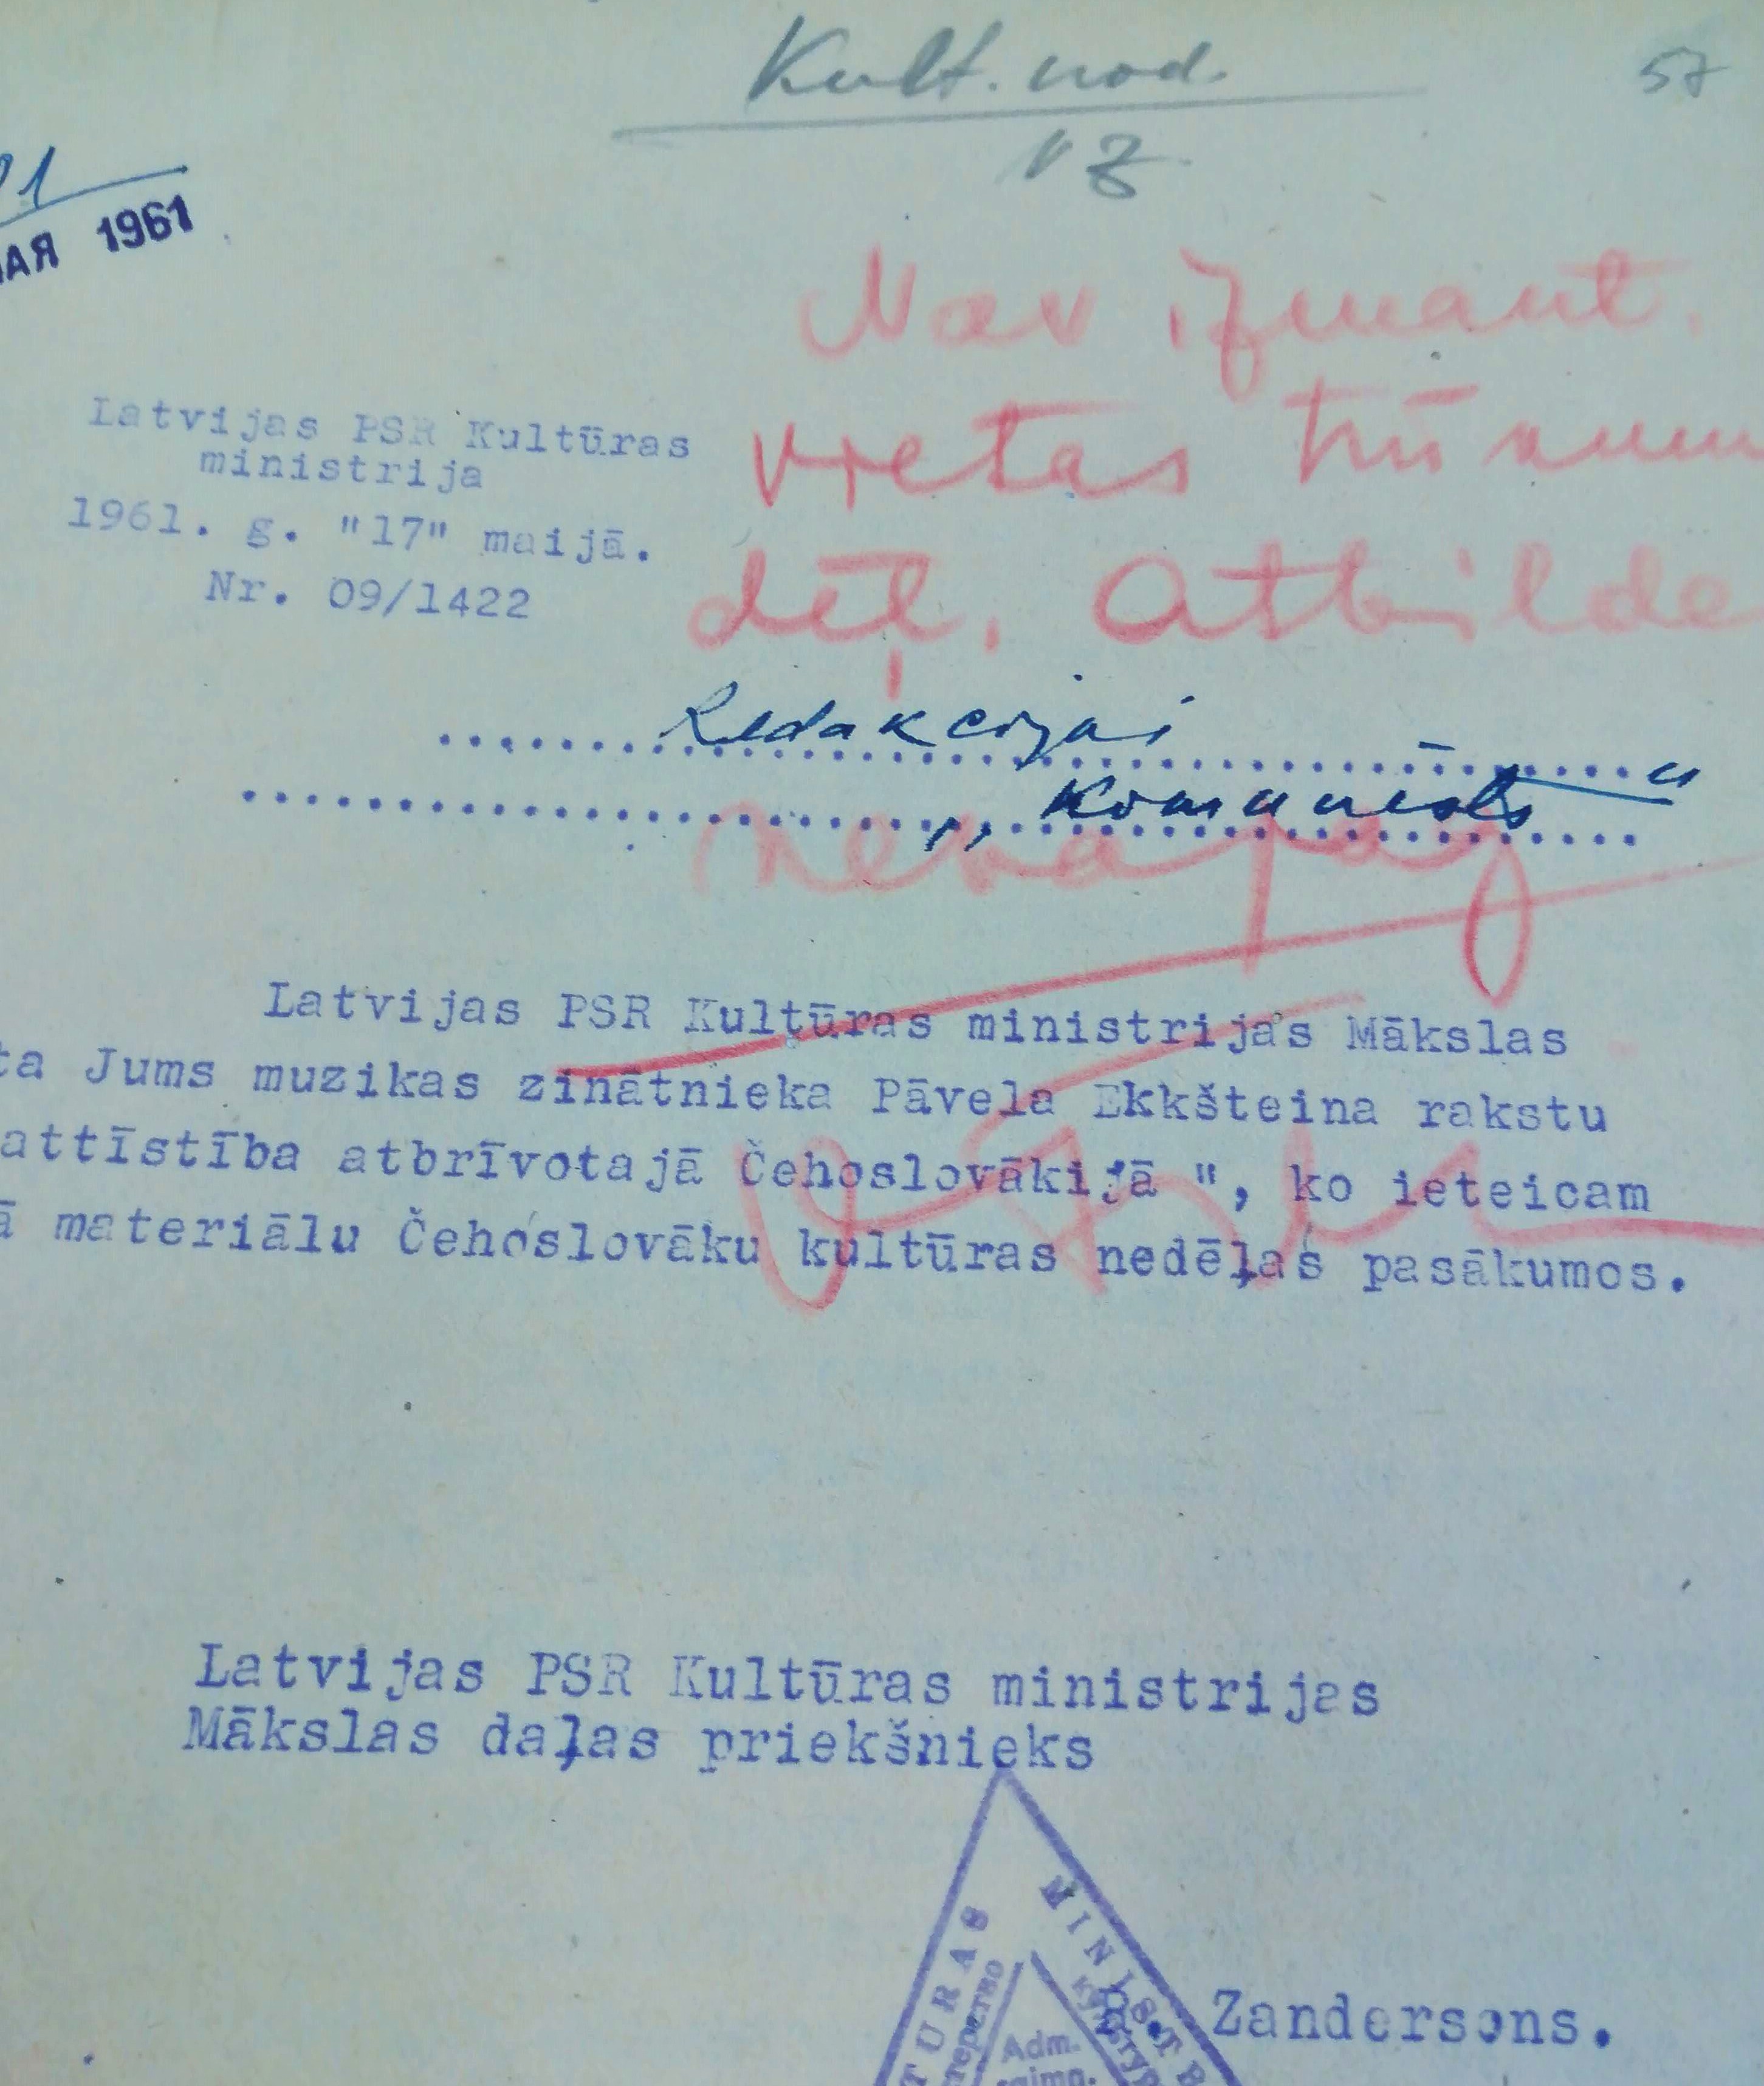 Kult. nod.
57
МАЯ 1961
Nav izmant.
Latvijas PSR Kultūras
ministrija
vietas trūkum
1961. g. "17" maijā.
Nr. 09/1422
dēļ. Atbilde
Redakcijai
„Komunists"
Latvijas PSR Kultūras ministrijas Mākslas
ta Jums muzikas zinātnieka Pāvela Ekkšteina rakstu
attīstība atbrīvotajā Čehoslovākijā ", ko ieteicam
ā materiālu Čehoslovāku kultūras nedēļas pasākumos.
Latvijas PSR Kultūras ministrijas
Mākslas daļas priekšnieks
MINISTR
TURAS
Adm.
Zandersons.